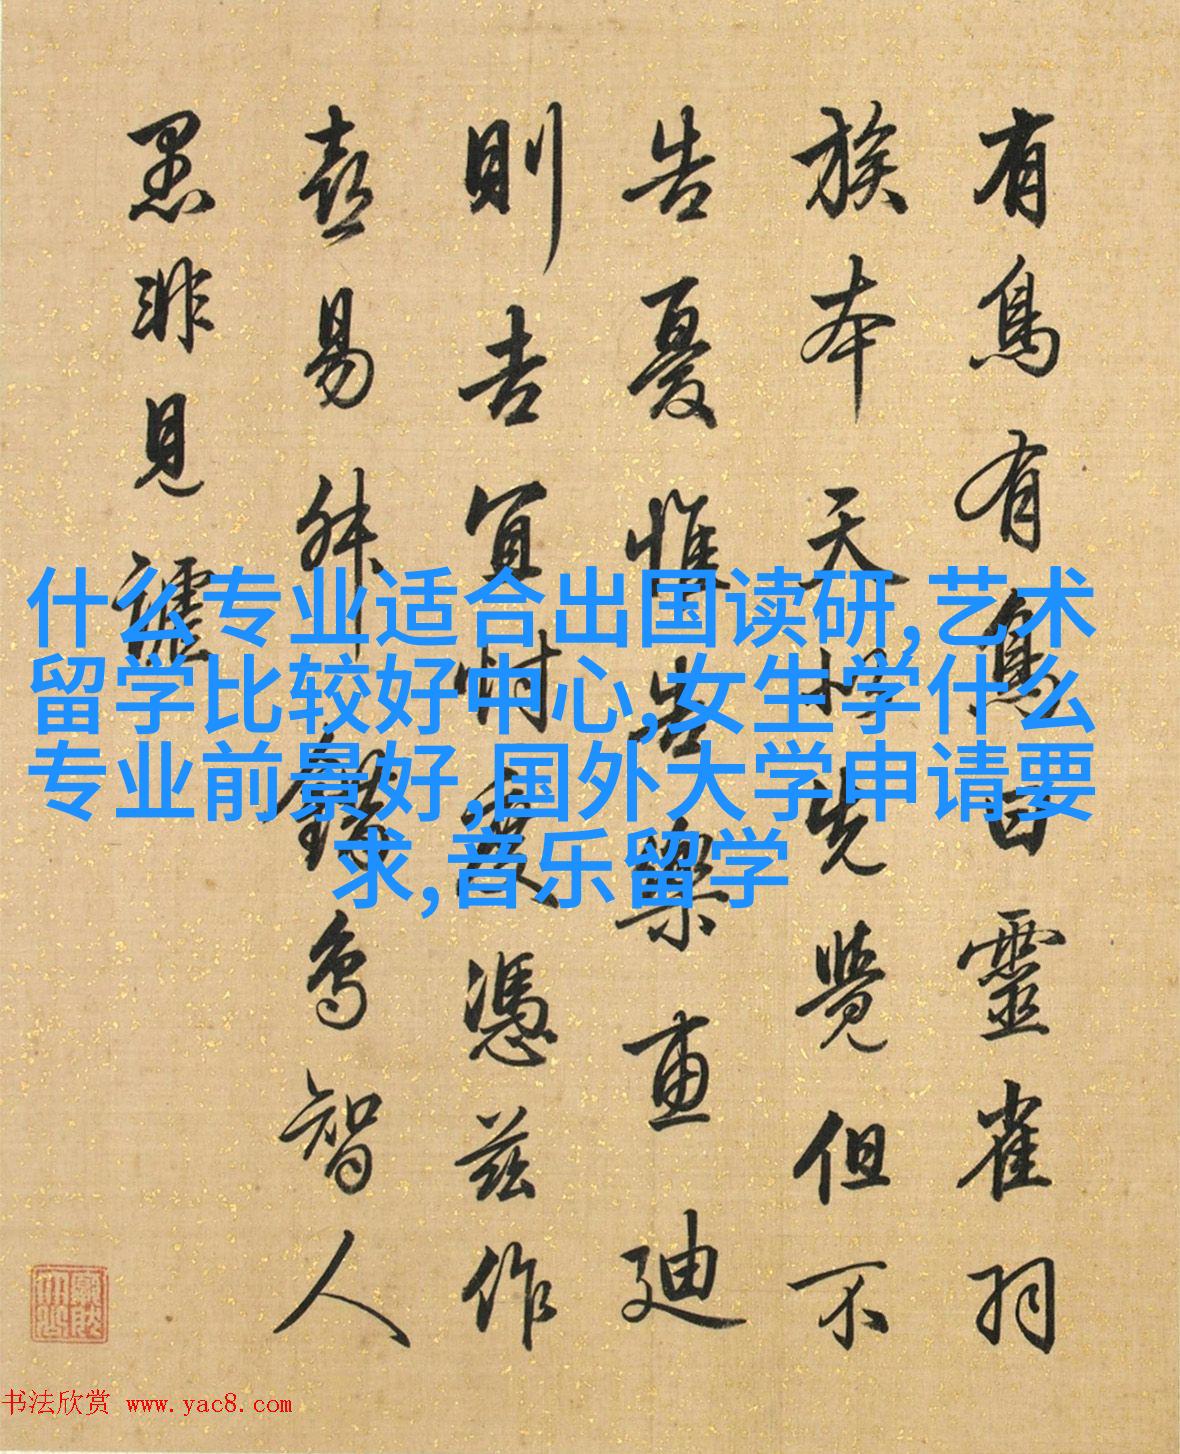 有鳥有鳥曰靈雀羽
族本天先覺但不
告憂惟告樂惠迪
則吉宜忖度憑茲作
喜易智人
愚非見
什么专业适合出国读研,艺术
留学比较好中心,女生学什么
专业前景好,国外大学申请要
求,音乐留学
书法欣赏 www.yac8.com